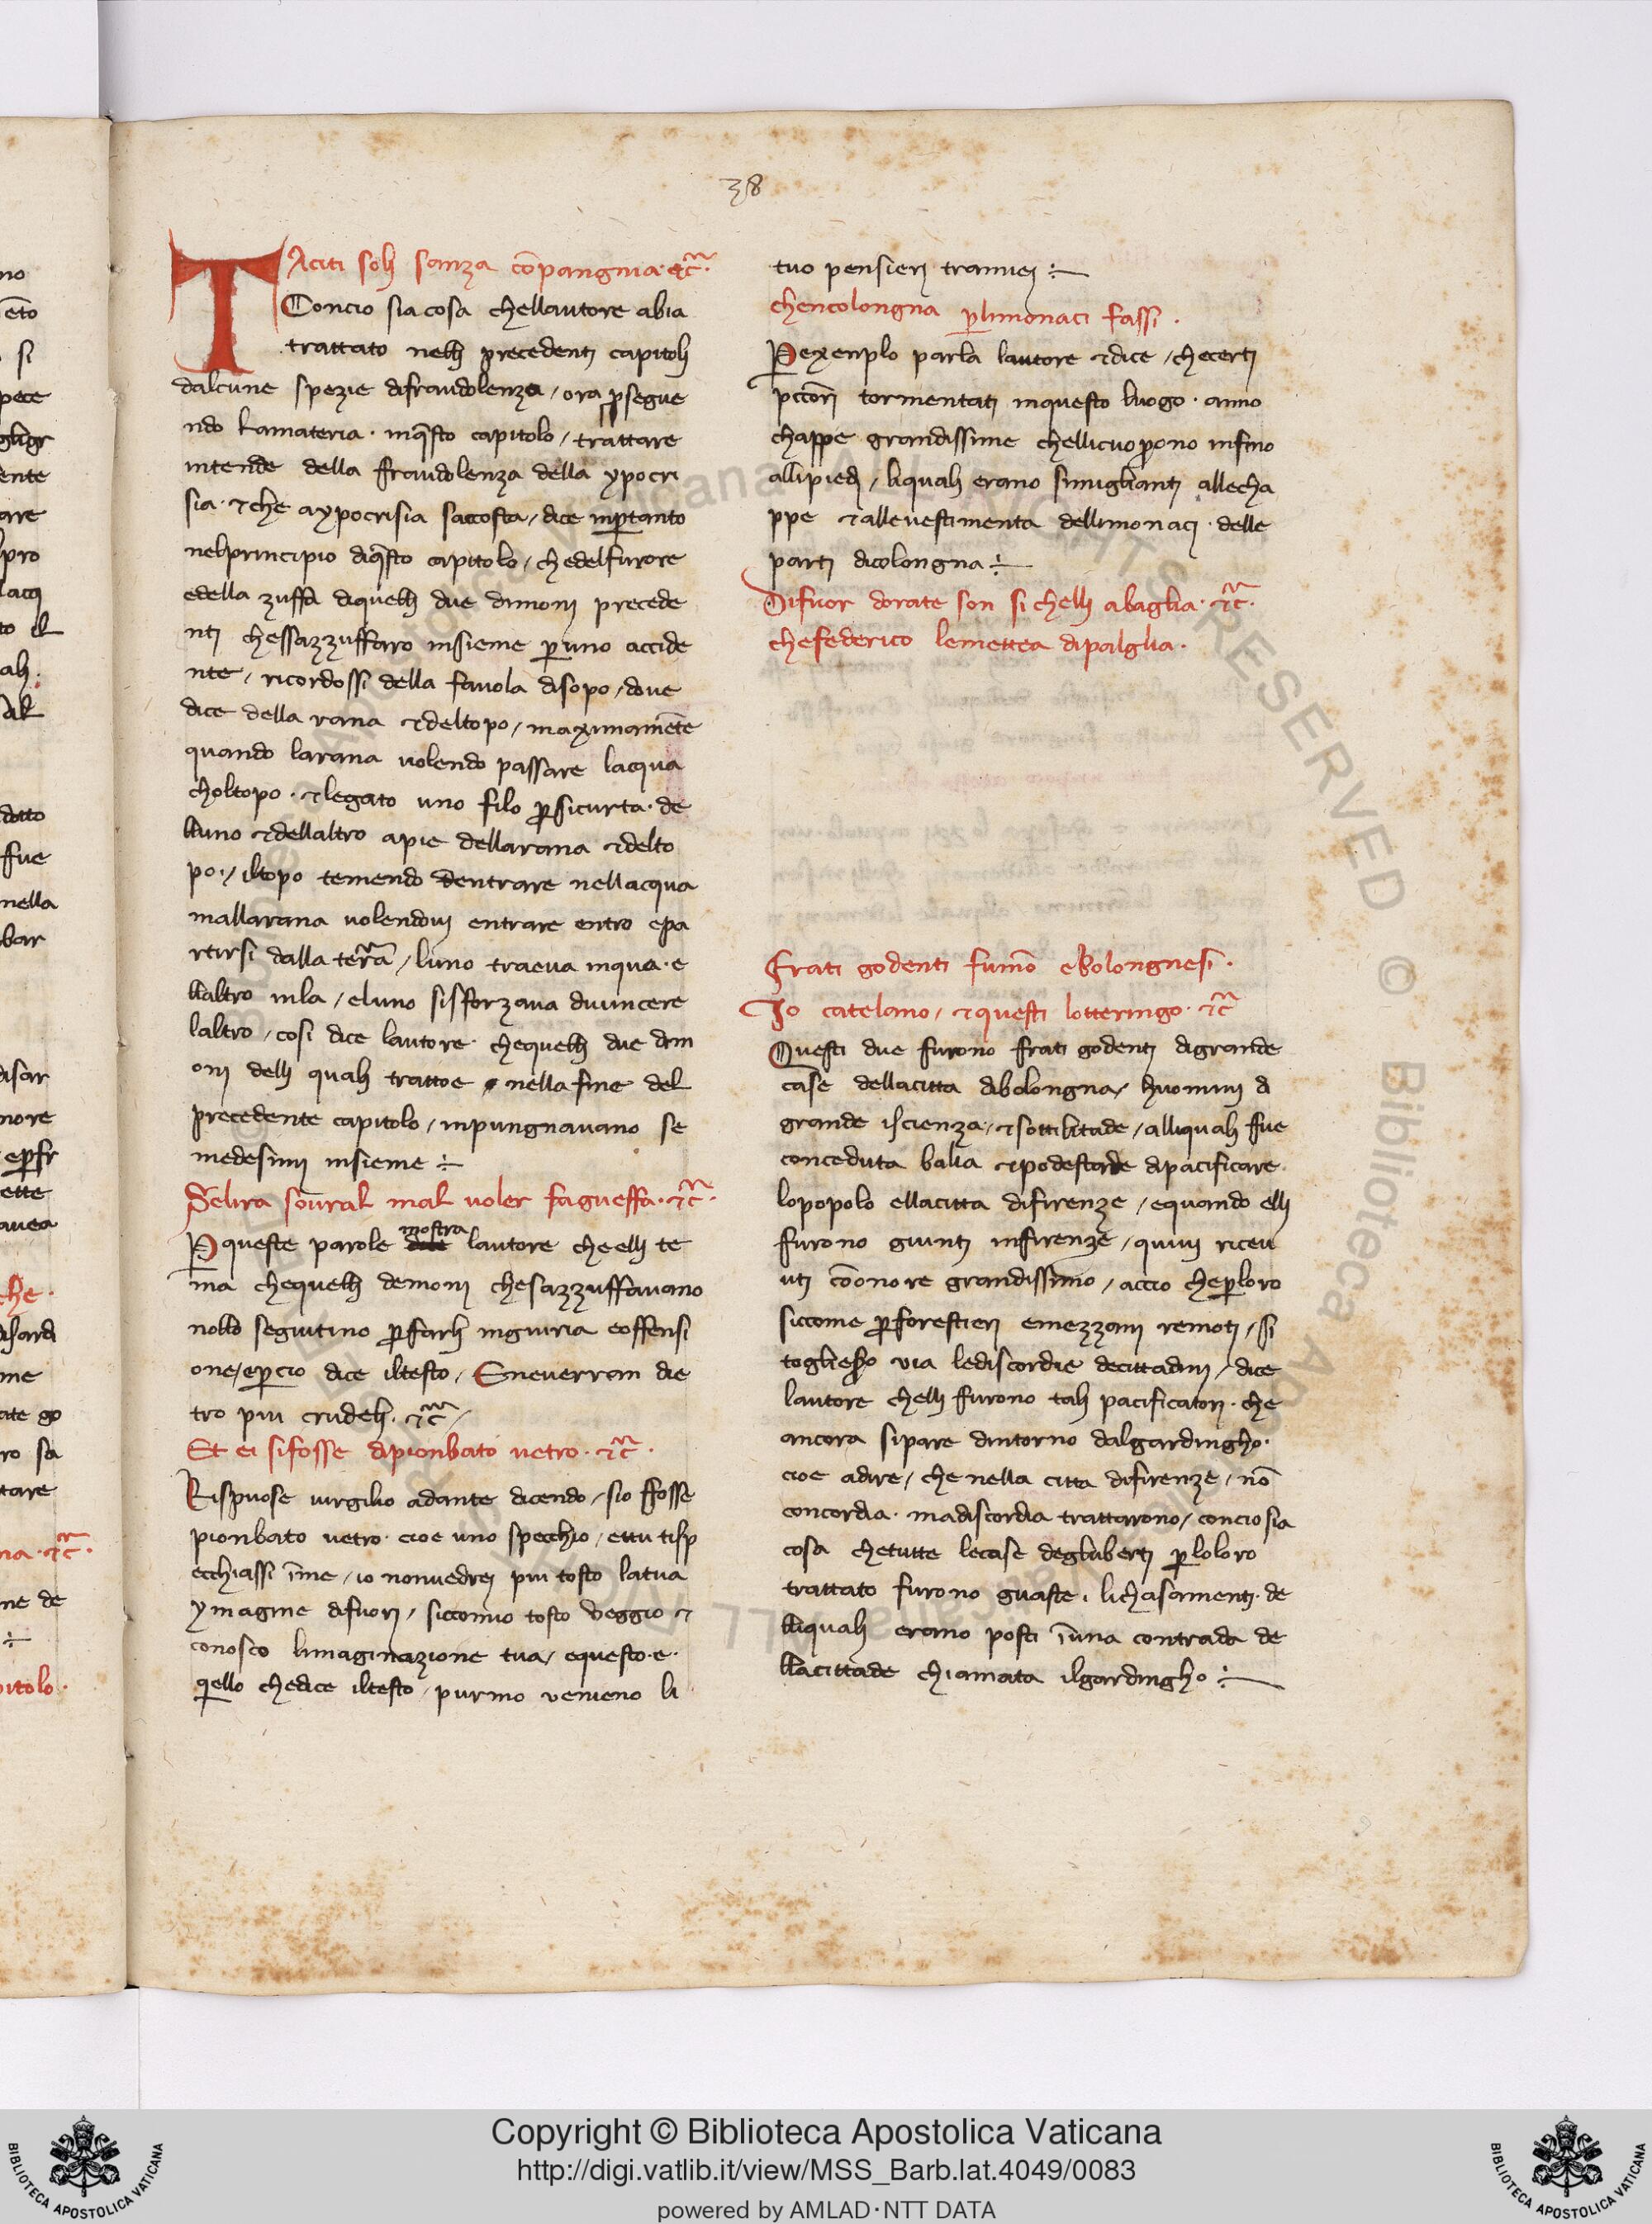 38
TAciti soli sanza cōpangnia· ⁊c̃·
Concio sia cosa chellautore abia
trattato nelli precedenti capitoli
dalcune spezie difraudolenza / ora ꝓsegue
ndo Lamateria · inq̄sto capitolo / trattare
intende della fraudolenza della ypocri
sia · ⁊che aypocrisia saccosta / dice inp̱tanto
nelprincipio diq̄sto capitolo / chedelfurore
edella zuffa diquelli due dimoni precede
nti chessazzuffaro insieme p̱uno accide
nte / ricordossi della fauola disopo / doue
dice della rana ⁊deltopo / maximamēte
quando larana uolendo passare lacqua
choltopo · ⁊legato uno filo ꝑsicurta · de
lluno ⁊dellaltro apie dellarana ⁊delto
po · / iltopo temendo dentrare nellacqua
mallarana uolendoui entrare entro epa
rtirsi dalla terra / luno traeua inqua · e
llaltro inla / eluno sisforzaua diuincere
laltro / cosi dice lautore · chequelli due dim
oni delli quali trattoe nella fine del
precedente capitolo / inpungnauano se
medesimi insieme ÷
Selira soural mal uoler fagueffa · ⁊c̃·
P̱ queste parole mostra lautore cheelli te
ma chequelli demoni chesazzuffauano
nollo seguitino ꝑfarli ingiuria eoffensi
one / ep̱cio dice iltesto / Eneuerran die
tro piu crudeli · ⁊c̃ /
Et ei sifosse dipionbato uetro · ⁊c̃ ·
Rispuose uirgilio adante dicendo / sio ffosse
pionbato uetro · cioe uno specchio / ettu tisp
ecchiassi īme / io nonuedrei piu tosto latua
ymagine difuori / siccomio tosto ueggio ⁊
conosco limaginazione tua / equesto · e ·
q̄ello chedice iltesto / purmo venieno li
tuo pensieri tramiei ÷
chencolongna p̱limonaci fassi ·
P̱exenplo parla lautore ⁊dice / checerti
pctōri tormentati inquesto luogo · anno
chappe grandissime chellicuoprono infino
allipiedi / liquali erano simiglianti allecha
ppe ⁊alleuestimenta dellimonaci · delle
parti dicolongna ÷
Difuor dorate son si chelli abaglia · ⁊c̃·
chefederico lemettea dipalglia ·
Frati godenti fumō ebolongnesi ·
Io catelano / ⁊questi lotteringo · ⁊c̃
Questi due furono frati godenti digrande
case dellacitta dibolongna / huomini di
grande iscienza / ⁊sottilitade / alliquali ffue
conceduta balia ⁊podestade dipacificare
lopopolo ellacitta difirenze / equando elli
furono giunti infirenze / quiui riceu
uti cōonore grandissimo / accio chep̱loro
siccome ꝑforestieri emezzani remoti / si
togliesse via lediscordie decittadini / dice
lautore chelli furono tali pacificatori · che
ancora sipare dintorno dalgardingho ·
cioe adire / che nella citta difirenze / nō
concordia · madiscordia trattarono / concio sia
cosa chetutte lecase degliuberti p̱loloro
trattato furono guaste · lichasamenti · de
lliquali erano posti īuna contrada de
llacittade chiamata ilgardingho ÷
Copyright © Biblioteca Apostolica Vaticana
http://digi.vatlib.it/view/MSS_Barb.lat.4049/0083
powered by AMLAD·NTT DATA